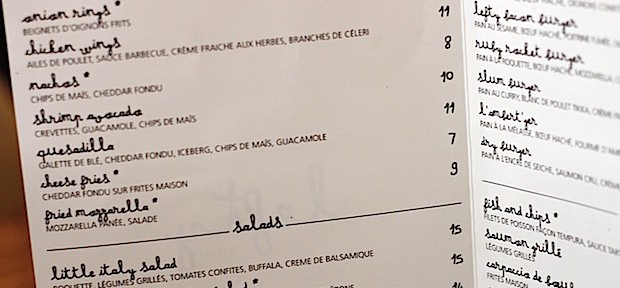 onion rings *
BEIGNETS D'OIGNONS FRITS
11
chicken wings
AILES DE POULET, SAUCE BARBECUE, CRÈME FRAICHE AUX HERBES, BRANCHES DE CÉLERI
8
nachos *
CHIPS DE MAÏS, CHEDDAR FONDU
10
shrimp avocado
CREVETTES, GUACAMOLE, CHIPS DE MAÏS
11
quesadilla
GALETTE DE BLÉ, CHEDDAR FONDU, ICEBERG, CHIPS DE MAÏS, GUACAMOLE
7
cheese fries *
CHEDDAR FONDU SUR FRITES MAISON
9
fried mozzarella *
MOZZARELLA PANÉE, SALADE
salads
little italy salad
15
ROQUETTE, LÉGUMES GRILLÉS, TOMATES CONFITES, BUFFALA, CREME DE BALSAMIQUE
15
14
lefty bacon burger
PAIN AU SÉSAME, BŒUF HACHÉ,
ruby rocket burger
PAIN À LA ROQUETTE, BŒUF HACHÉ, MOZZARELLA,
slum burger
PAIN AU CURRY, BLANC DE POULET TIKKA,
l'ambert'ger
PAIN À LA MÉLASSE, BŒUF HACHÉ, FOURME
dry burger
PAIN À L'ENCRE DE SEICHE, SAUMON CRU,
fish and chips *
FILETS DE POISSON FAÇON TEMPURA, SAUCE
saumon grillé
LÉGUMES GRILLÉS
carpaccio de
FRITES MAISON